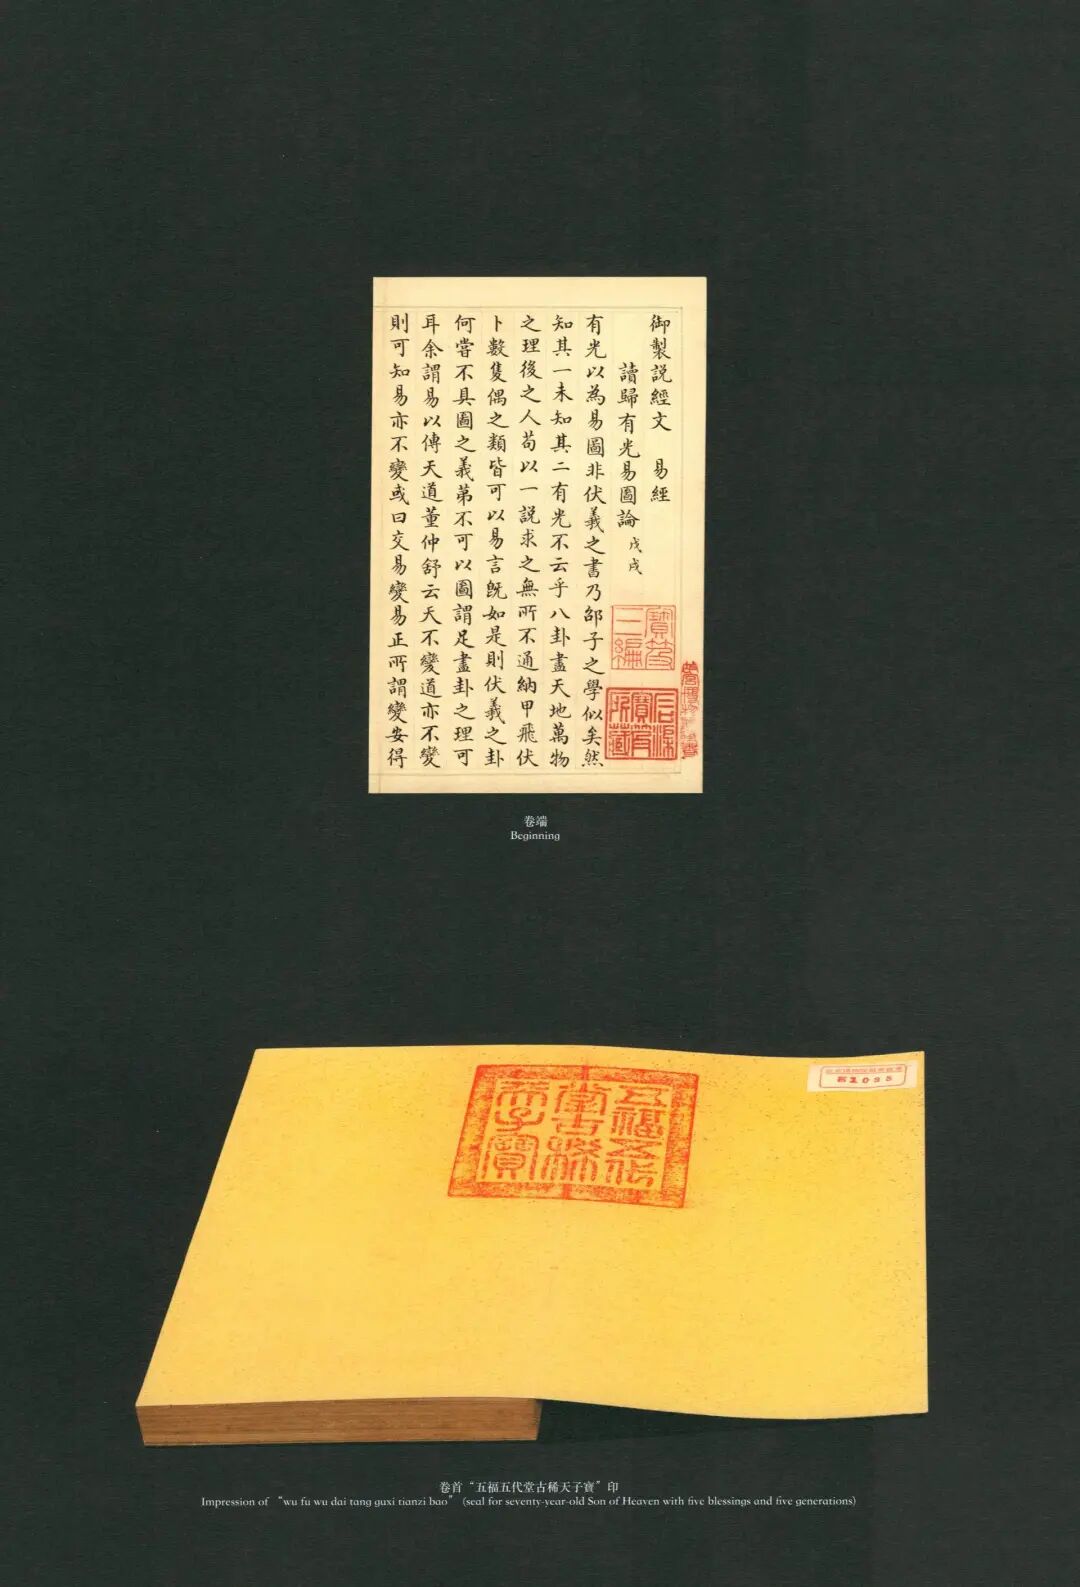 御製說經文　易經
讀歸有光易圖論 戊戌
有光以為易圖非伏羲之書乃邵子之學似矣然
知其一未知其二有光不云乎八卦盡天地萬物
之理後之人苟以一說求之無所不通納甲飛伏
卜數隻偶之類皆可以易言旣如是則伏羲之卦
何嘗不具圖之義第不可以圖謂足盡卦之理可
耳余謂易以傳天道董仲舒云天不變道亦不變
則可知易亦不變或曰交易變易正所謂變安得
寶笈
三編
石渠
寶笈
所藏
卷端
Beginning
五福五代
堂古稀
天子寶
1095
卷首“五福五代堂古稀天子寶”印
Impression of “wu fu wu dai tang guxi tianzi bao” (seal for seventy-year-old Son of Heaven with five blessings and five generations)